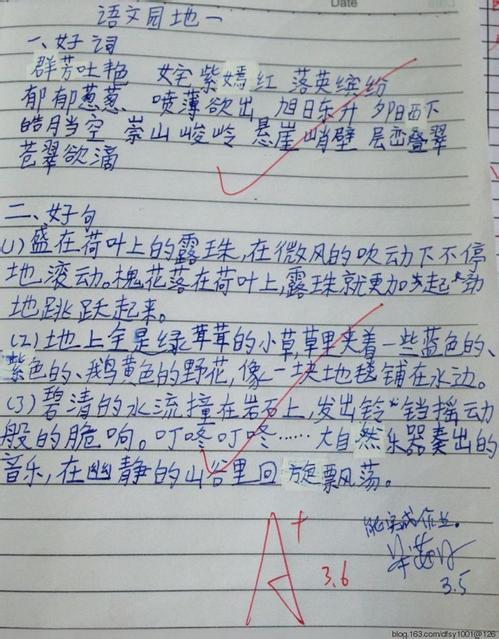 Date
语文园地一
一、好词
群芳吐艳 姹紫嫣红 落英缤纷
郁郁葱葱 喷薄欲出 旭日东升 夕阳西下
皓月当空 崇山峻岭 悬崖峭壁 层峦叠翠
苍翠欲滴
二、好句
(1)盛在荷叶上的露珠,在微风的吹动下不停
地滚动。槐花落在荷叶上,露珠就更加步起劲
地跳跃起来。
(2)地上全是绿茸茸的小草,草里夹着一些蓝色的、
紫色的、鹅黄色的野花,像一块地毯铺在水边。
(3)碧清的水流撞在岩石上,发出铃铛摇动
般的脆响。叮咚叮咚……大自然乐器奏出的
音乐,在幽静的山谷里回旋飘荡。
A+
3.6
能完成作业。
3.5
blog.163.com/dfsy1001@126